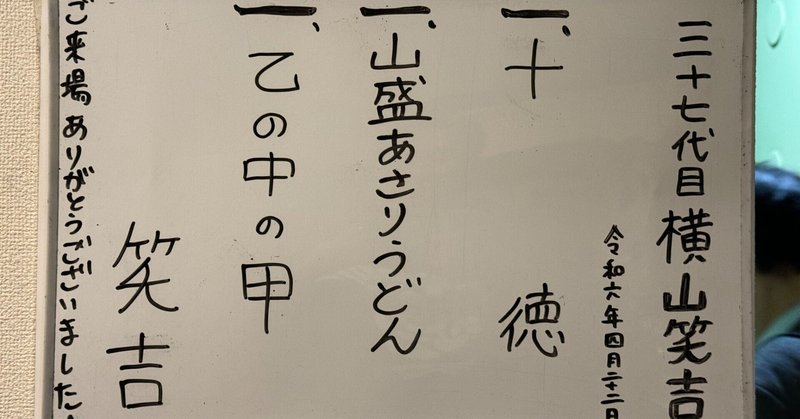 三十七代目横山笑吉
令和六年四月二十二日
一、十 徳
一、山盛あさりうどん
一、乙の中の甲
笑吉
ご来場ありがとうございました